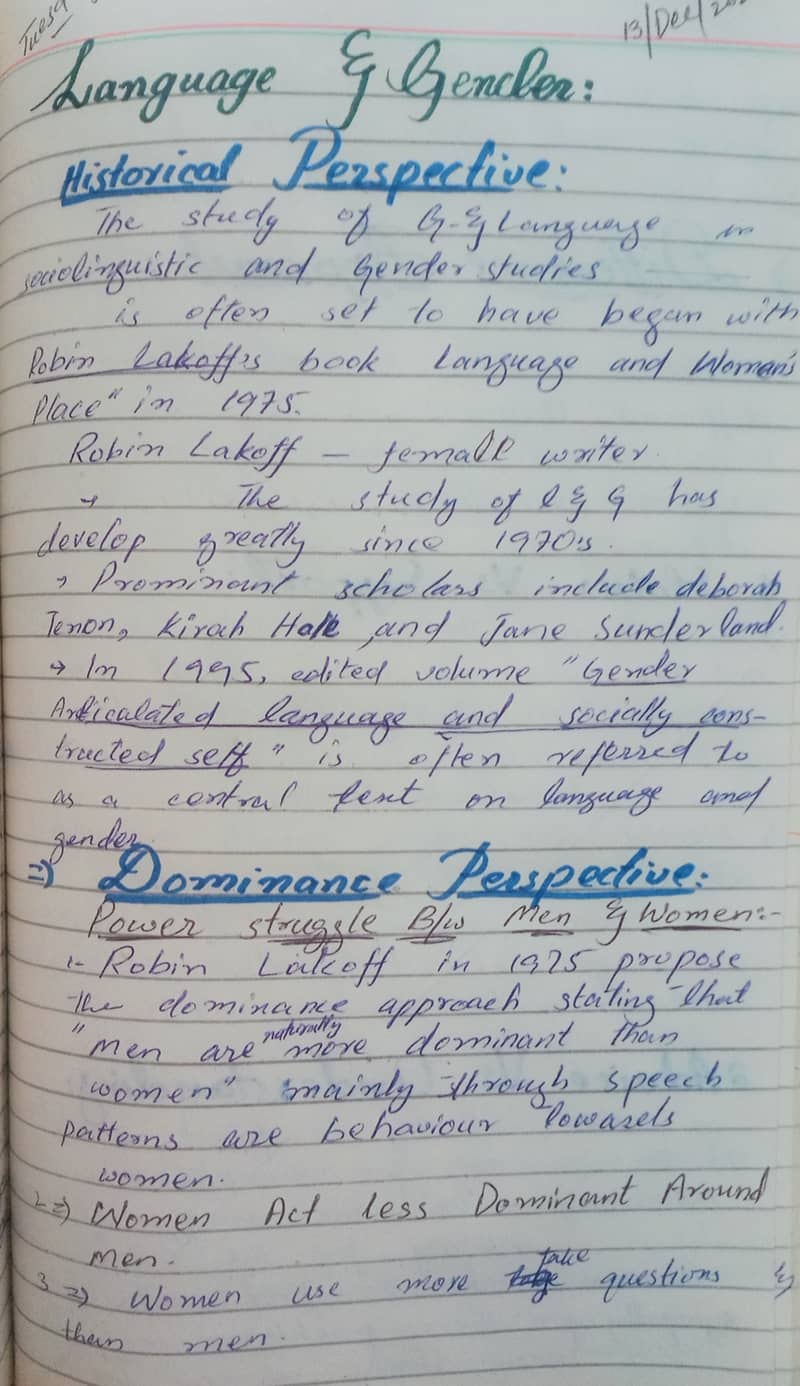 Tuesd
13/Dec/20
Language & Gender:
Historical Perspective:
The study of G-& Language in
sociolinguistic and Gender studies
is often set to have began with
Robin Lakoff's book Language and Woman's
Place" in 1975.
Robin Lakoff – female writer.
→ The study of l & G has
develop greatly since 1970's.
→ Prominant scholars include deborah
Tenon, Kirah Hale, and Jane Sunderland.
→ In 1995, edited volume "Gender
Articalated language and socially cons-
tructed self" is often referred to
as a central text on language and
gender.
=) Dominance Perspective:
Power struggle B/w Men & Women:-
1- Robin Lakoff in 1975 propose
the dominance approach stating that
"Men are naturally more dominant than
women" mainly through speech
patterns are behaviour towards
women.
2=) Women Act less Dominant Around
Men.
3=) Women use more take questions &
than men.